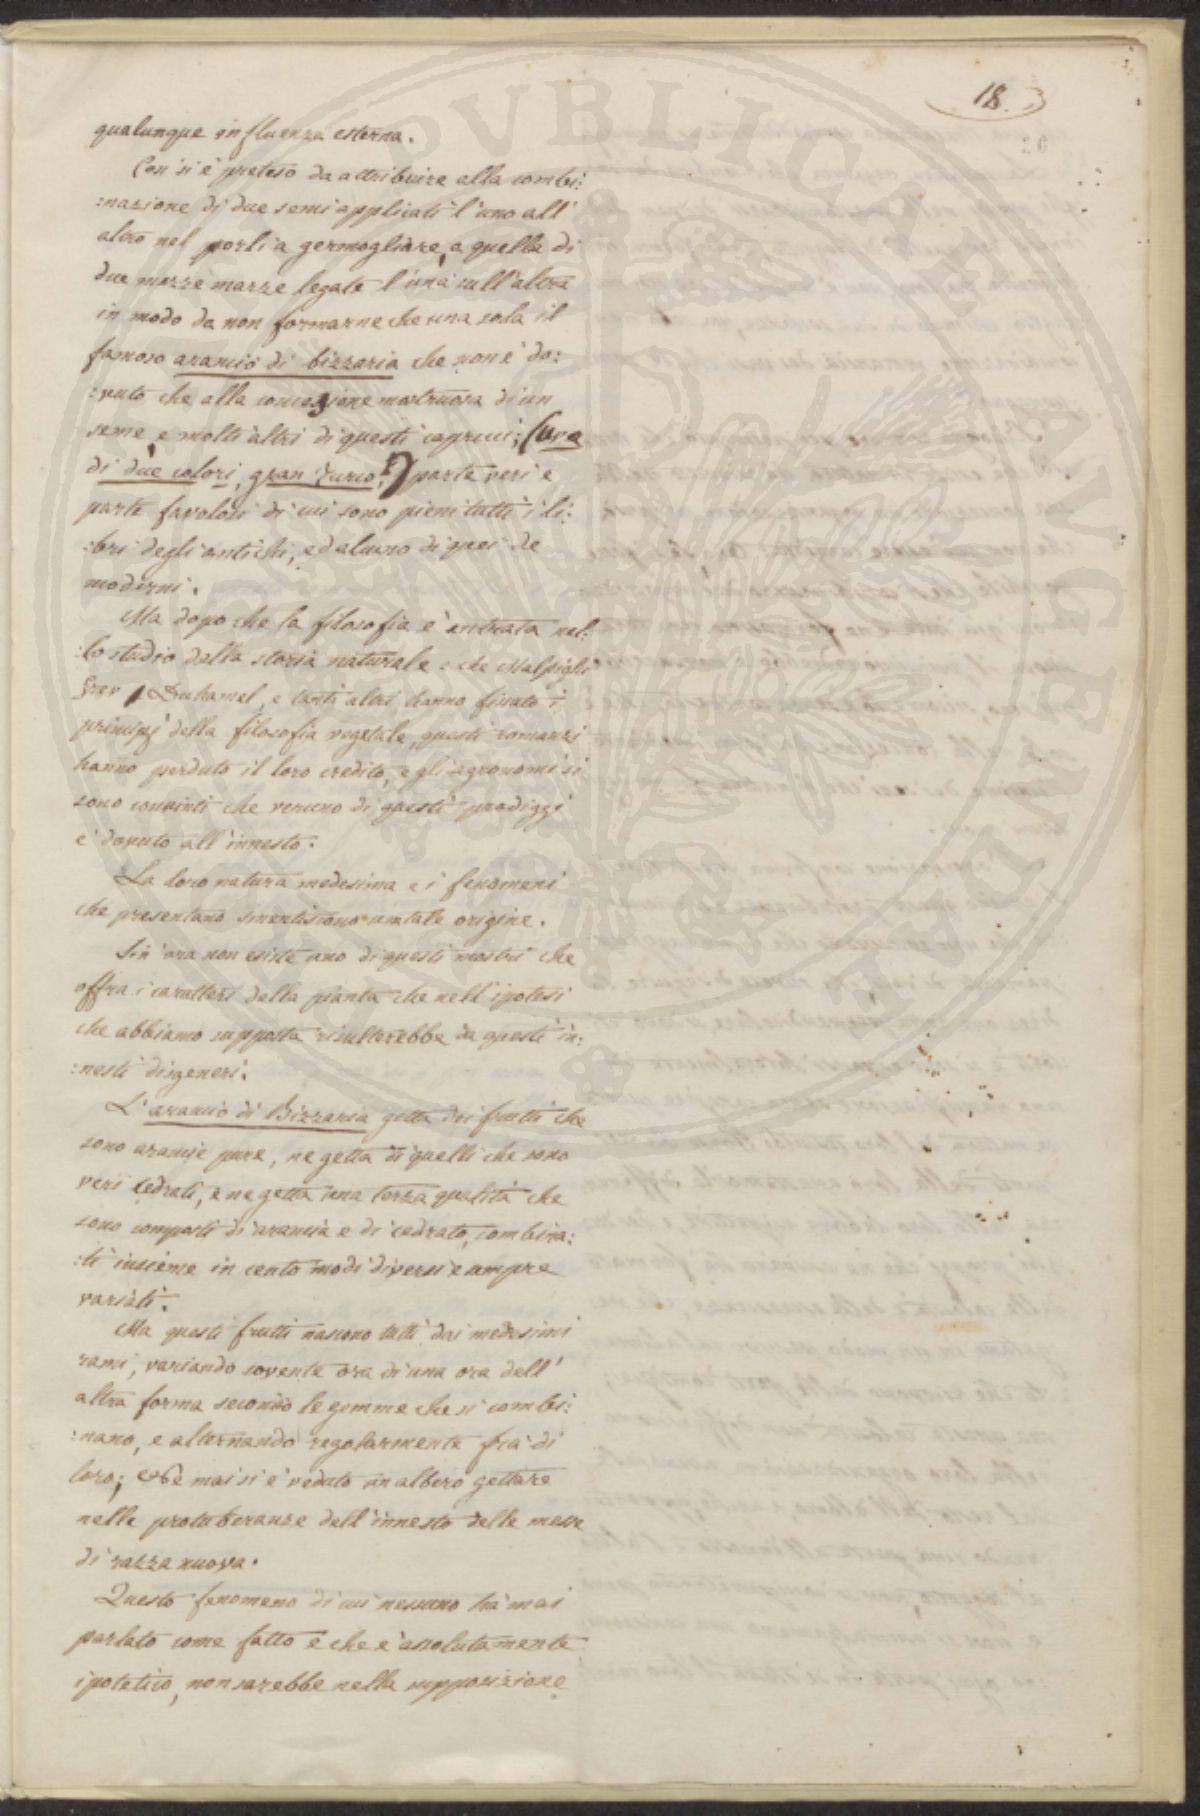 18.
qualunque influenza esterna.
Così si è preteso da attribuire alla combi:
:nazione di due semi applicati l'uno all'
altro nel porli a germogliare, a quella di
due mezze marze legate l'una sull'altra
in modo da non formarne che una sola il
famoso arancio di bizzaria che non è do:
:vuto che alla concezione mostruosa di un
seme, e molti altri di questi capricci; (uva
di due colori, gran Turco,?) parte veri e
parte favolosi di cui sono pieni tutti i li:
:bri degli antichi, ed alcuno di quei de
moderni.
Ma dopo che la filosofia è entrata nel:
:lo studio della storia naturale e che Malpighi
Grev, Duhamel, e tanti altri hanno fissato i
principj della filosofia vegetale, questi romanzi
hanno perduto il loro credito, e gli agronomi si
sono convinti che veruno di questi prodiggi
è dovuto all'innesto.
La loro natura medesima e i fenomeni
che presentano smentiscono una tale origine.
Sin'ora non esiste uno di questi mostri che
offra i caratteri della pianta che nell'ipotesi
che abbiamo supposta risulterebbe da questi in:
:nesti disgeneri.
L'arancio di Bizzaria getta dei frutti che
sono arancie pure, ne getta di quelli che sono
veri cedrati, e ne getta una terza qualità che
sono composti di arancia e di cedrato, combina:
:ti insieme in cento modi diversi e sempre
variati.
Ma questi frutti nascono tutti dai medesimi
rami, variando sovente ora di una ora dell'
altra forma secondo le gemme che si combi:
:nano, e alternando regolarmente fra di
loro; Nè mai si è veduto un albero gettare
nelle protuberanze dell'innesto delle messe
di razza nuova.
Questo fenomeno di cui nessuno ha mai
parlato come fatto e che è assolutamente
ipotetico, non sarebbe nella supposizione
PVBLICAE AVGENDAE